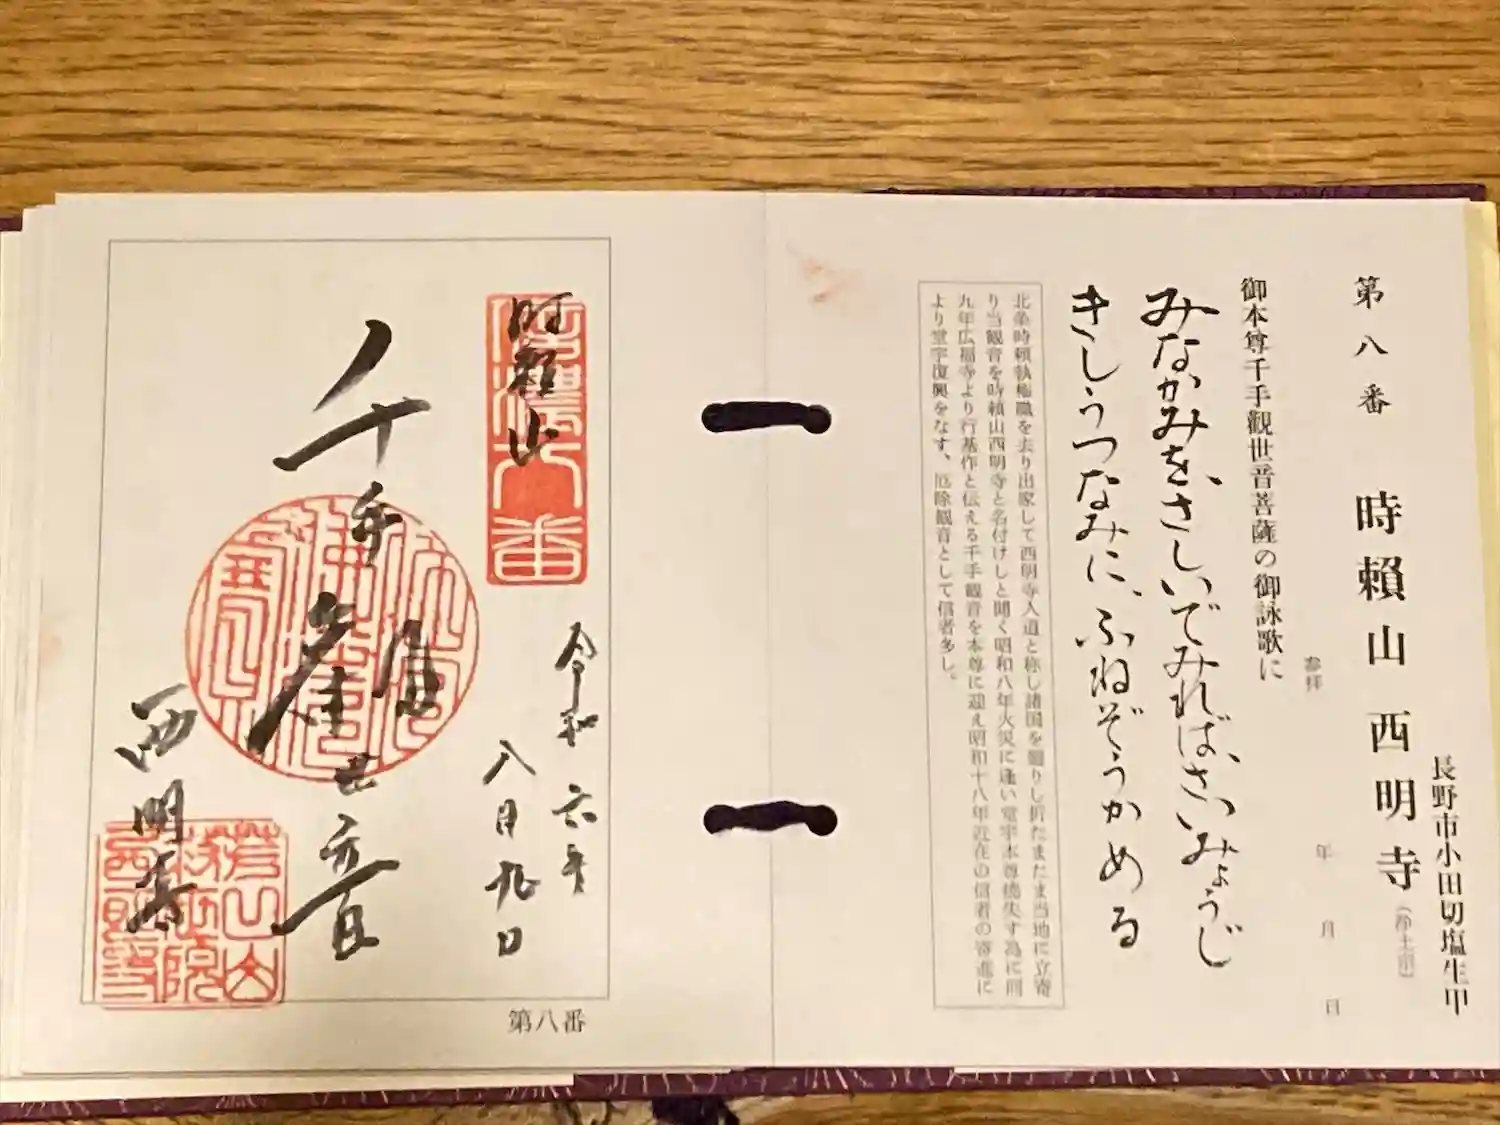 長野市小田切塩生甲
第八番 時賴山 西明寺(浄土宗)
参拝 年 月 日
御本尊千手觀世音菩薩の御詠歌に
みなかみを、さしいでみれば、さいみょうじ
きしうつなみに、ふねぞうかめる
北条時頼執権職を去り出家して西明寺入道と称し諸国を廻りし折たまたま当地に立寄
り当観音を時頼山西明寺と名付けしと聞く昭和八年火災に逢い堂宇本尊焼失す為に同
九年広福寺より行基作と伝える千手観音を本尊に迎え昭和十八年近在の信者の寄進に
より堂宇復興をなす、厄除観音として信者多し。
時賴山
令和六年
八月九日
千手觀世音
西明寺
第八番